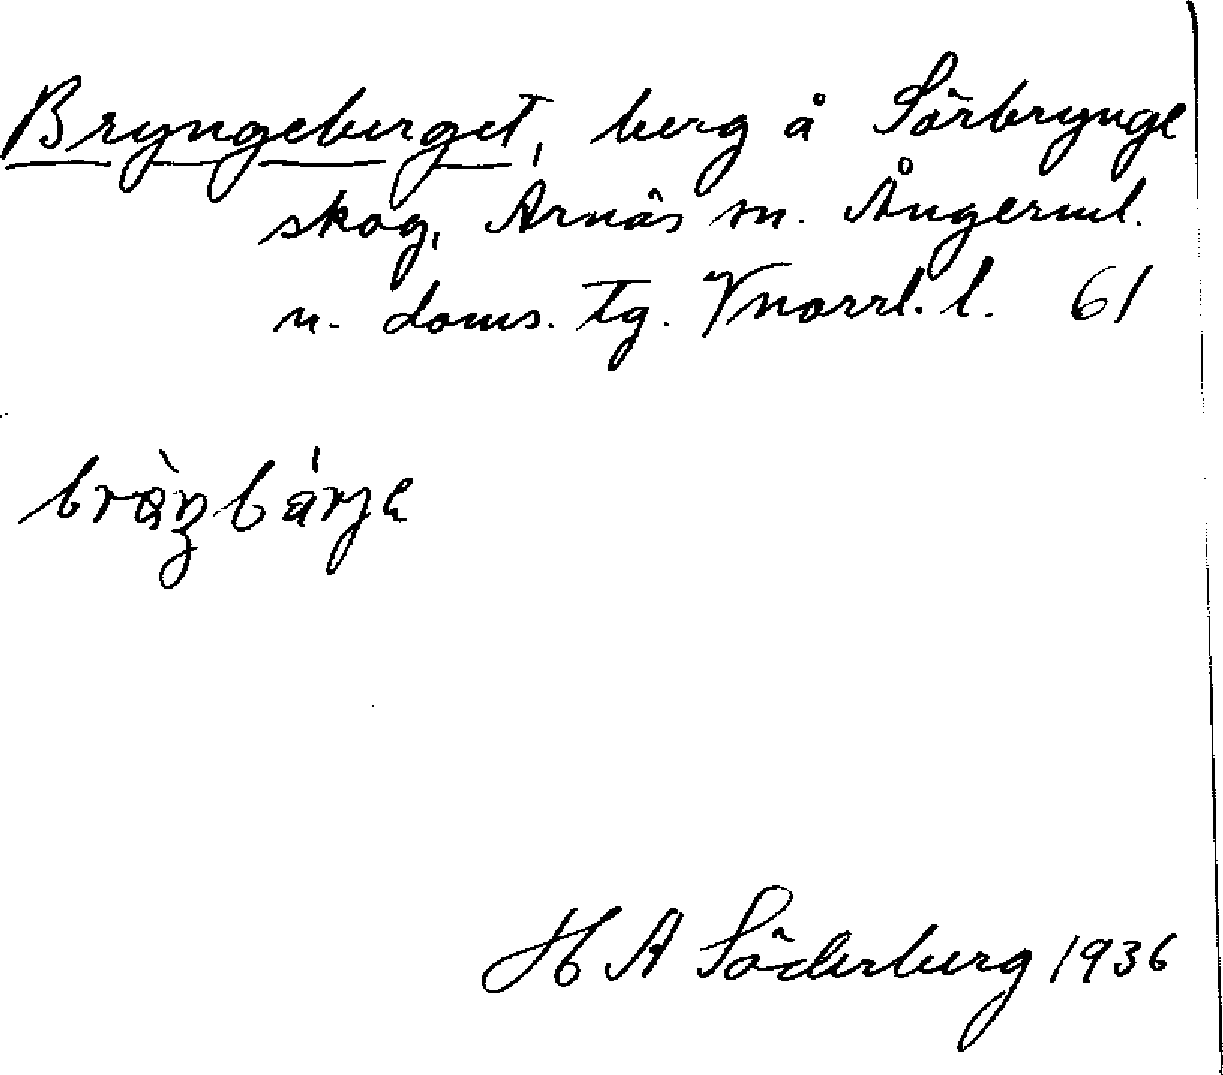 Bryngeberget, berg å Sörbrynge
skog, Arnäs sn. Ångerml.
n. doms. tg. Vnorrl. l. 61
H A Söderberg 1936